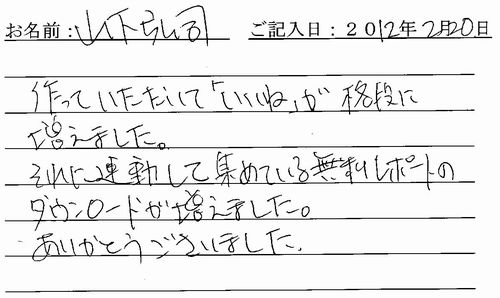 お名前：山下弘司 ご記入日：2012年2月20日
作っていただいて「いいね」が格段に
増えました。
それに連動して集めている無料レポートの
ダウンロードが増えました。
ありがとうございました。